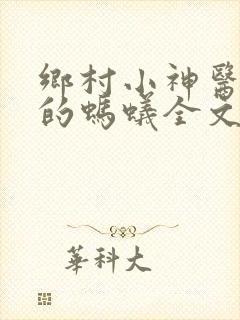 鄉村小神醫
的螞蟻全文
華科大